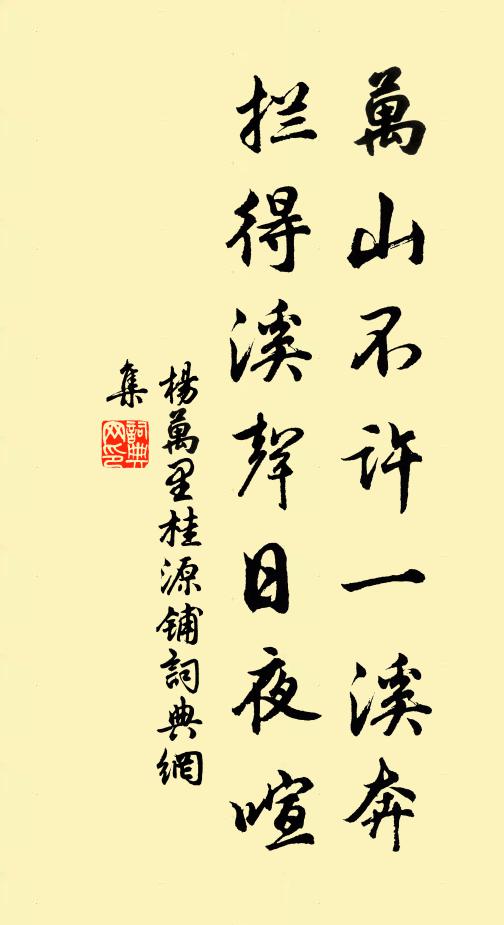 萬山不许一溪奔
拦得溪聲日夜喧
楊萬里桂源铺詞典網
集
詞典
网印